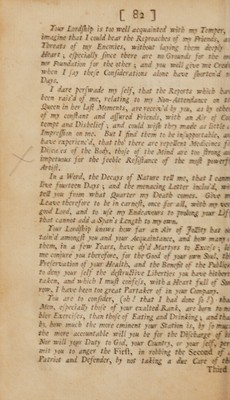 [ 82 ]
Your Lordship is too well acquainted with my Temper,
imagine that I could bear the Reproaches of my Friends, a
Threats of my Enemies, without laying them deeply
Heart; especially since there are no Grounds for the on
nor Foundation for the other; and you will give me Cred
when I say these Considerations alone have shorten'd
Days.
I dare perswade my self, that the Reports which hav
been rais'd of me, relating to my Non-Attendance on th
Queen in her last Moments, are receiv'd by you, as by othe
of my constant and assured Friends, with an Air of Con
tempt and Disbelief; and could wish they made as little
Impression on me. But I find them to be insupportable, an
have experienc'd, that tho' there are repellent Medicines f
Diseases of the Body, those of the Mind are too strong an
impetuous for the feeble Resistance of the most powerf
Artist.
In a Word, the Decays of Nature tell me, that I cann
live fourteen Days; and the menacing Letter inclos'd, wi
tell you from what Quarter my Death comes. Give m
Leave therefore to be in earnest, once for all, with my ver
good Lord, and to use my Endeavours to prolong your Lif
that cannot add a Span's Length to my own.
Your Lordship knows how far an Air of Jollity has ob
tain'd amongst you and your Acquaintance, and how many
them, in a few Years, have dy'd Martyrs to Excess; le
me conjure you therefore, for the Good of your own Soul, th
Preservation of your Health, and the Benefit of the Publick
to deny your self the destructive Liberties you have hithert
taken, and which I must confess, with a Heart full of Sor
row, I have been too great Partaker of in your Company.
You are to consider, (oh! that I had done so!) tha
Men, especially those of your exalted Rank, are born to no
bler Exercises, than those of Eating and Drinking; and tha
by how much the more eminent your Station is, by so muc
the more accountable will you be for the Discharge of it
Nor will your Duty to God, your Country, or your self, per
mit you to anger the First, in robbing the Second of
Patriot and Defender, by not taking a due Care of th
Third